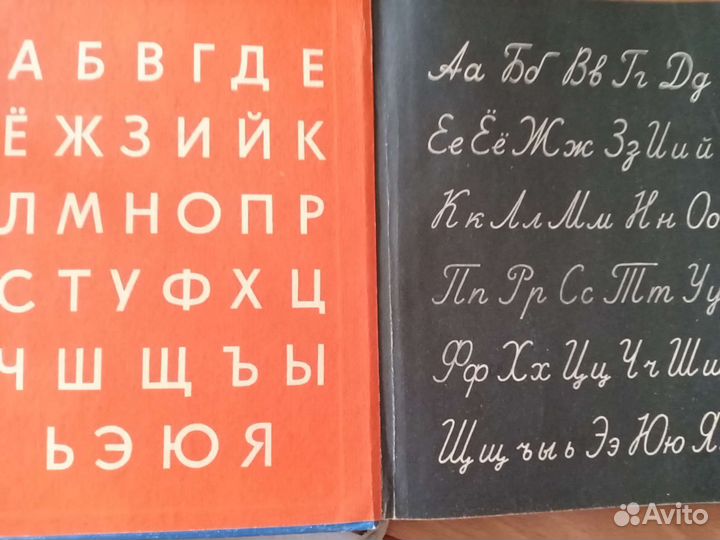 А Б В Г Д Е
Ё Ж З И Й К
Л М Н О П Р
С Т У Ф Х Ц
Ч Ш Щ Ъ Ы
Ь Э Ю Я
Аа Бб Вв Гг Дд
Ее Ёё Жж Зз Ии й
Кк Лл Мм Нн Оо
Пп Рр Сс Тт Уу
Фф Хх Цц Чч Шш
Щщ ъ ы ь Ээ Юю Я
Avito